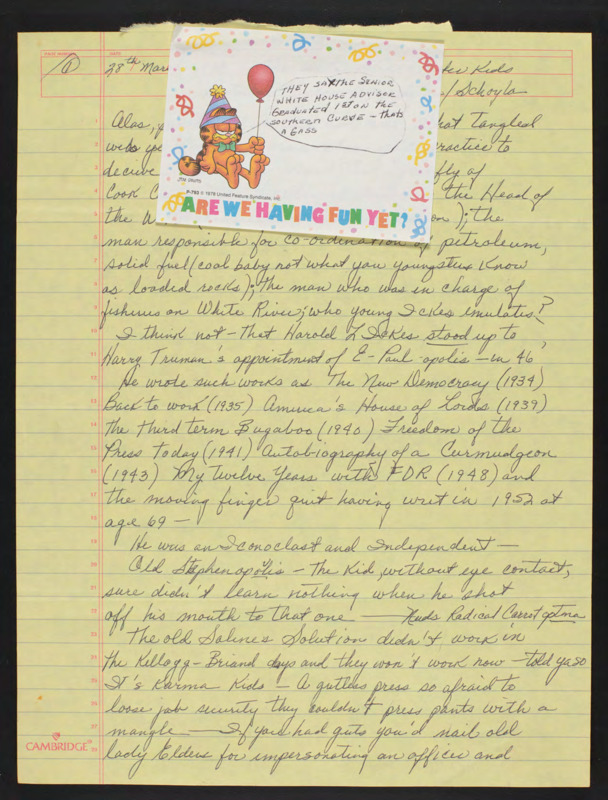 PAGE NUMBER
DATE
1
28th Mar
Kids
/ Schoyla
THEY SAY THE SENIOR
WHITE HOUSE ADVISOR
GRADUATED 1ST ON THE
SOUTHERN CURVE - THATS
A GASS
JIM DAVIS
P-793 © 1978 United Feature Syndicate, Inc.
ARE WE HAVING FUN YET?
Alas, y
hat tangled
we
ractice to
deceive
fly of
Cook C
the Head of
the W
on); the
man responsible for co-ordination of petroleum,
solid fuel (coal baby not what you youngsters know
as loaded rocks); the man who was in charge of
fisheries on White River; who young Ickes emulates?
I think not - That Harold L Ickes stood up to
Harry Truman's appointment of E-Paul-opolis - in 46
He wrote such works as The New Democracy (1934)
Back to work (1935) America's House of Lords (1939)
the Third term Bugaboo (1940) Freedom of the
Press Today (1941) Autobiography of a Curmudgeon
(1943) My Twelve Years with FDR (1948) and
the moving finger quit having writ in 1952 at
age 69 -
He was an Iconoclast and Independent -
Old Stephenopolis - the Kid, without eye contact,
sure didn't learn nothing when he shot
off his mouth to that one - Radical Carrot
The old Salines Solution didn't work in
the Kellogg-Briand days and they won't work now - told ya so
It's Karma Kids - A gutless press so afraid to
loose job security they couldn't press pants with a
mangle - If you had guts you'd nail old
lady Elders for impersonating an officer and
CAMBRIDGE